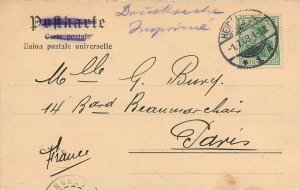 Postkarte
Drucksache
Imprimé
Carte postale
Union postale universelle
Melle G. Bury.
14 Bard Beaumarchais
Paris
France